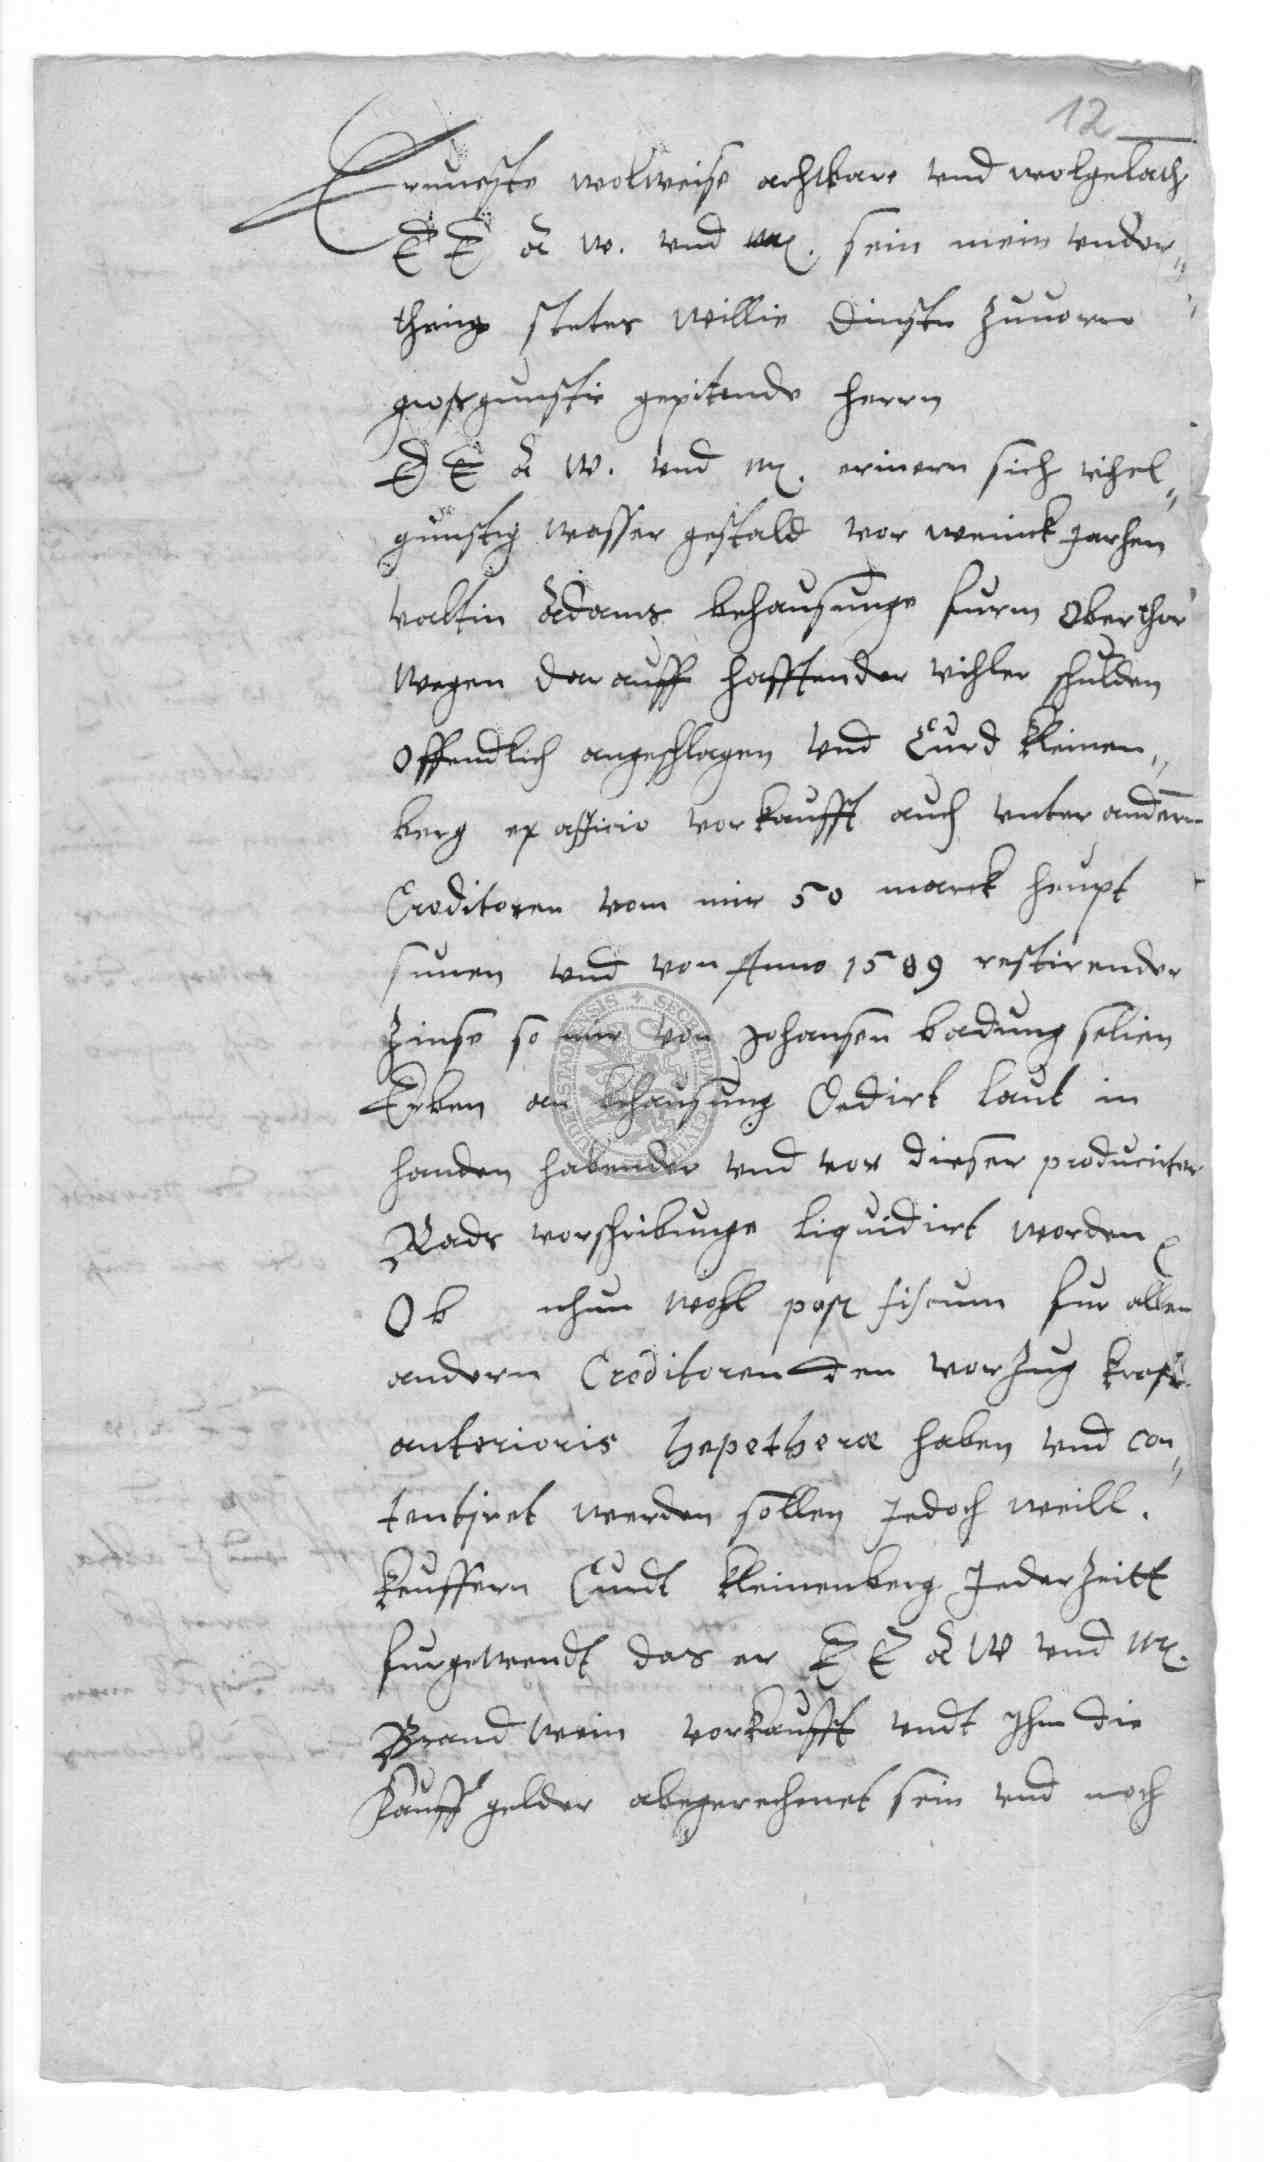 12
Ernueste wolweise achtbare vnd wolgelarth
E E A W. vnd W. sein mein vnder„
thenige stetes willie dinste zuuorn
grosgunstie gepitende herrn
E E A W. vnd W. erinern sich vihel„
gunstig wasser gestald vor weinick Jarhen
valtin Adams behausunge furm Oberthor
wegen darauff hafftender vihler schulden
Offendlich angeschlagen vnd Curd kleinen„
berg ex officio vorkaufft auch vnter andern
Creditoren von mir 50 marck heupt
sumen vnd von Anno 1589 restirender
Zinse so mir von Johansen badung selien
Erben an behausung Cedirt laut in
handen habender vnd vor dieser producirter
Rads vorschribunge liquidirt worden
Ob nhun wohl post fiscum fur allen
andern Creditoren den vorzug kraft
anterioris hepothecæ haben vnd con„
tentiret werden sollen Jedoch weill.
keuffern Curdt kleinenberg Jederzeitt
furgewendt das er E E A W vnd W.
Brandwein vorkaufft vndt Ihm die
Kauffgelder abegerechnet sein vnd noch